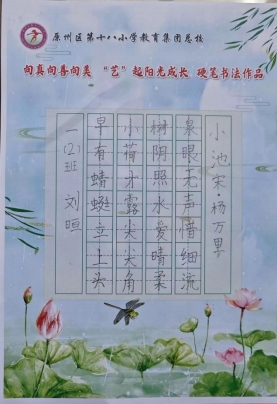 原州区第十八小学教育集团总校
向真向善向美 “艺”起阳光成长 硬笔书法作品
小池 宋·杨万里
泉眼无声惜细流
树阴照水爱晴柔
小荷才露尖尖角
早有蜻蜓立上头
一(2)班 刘晅